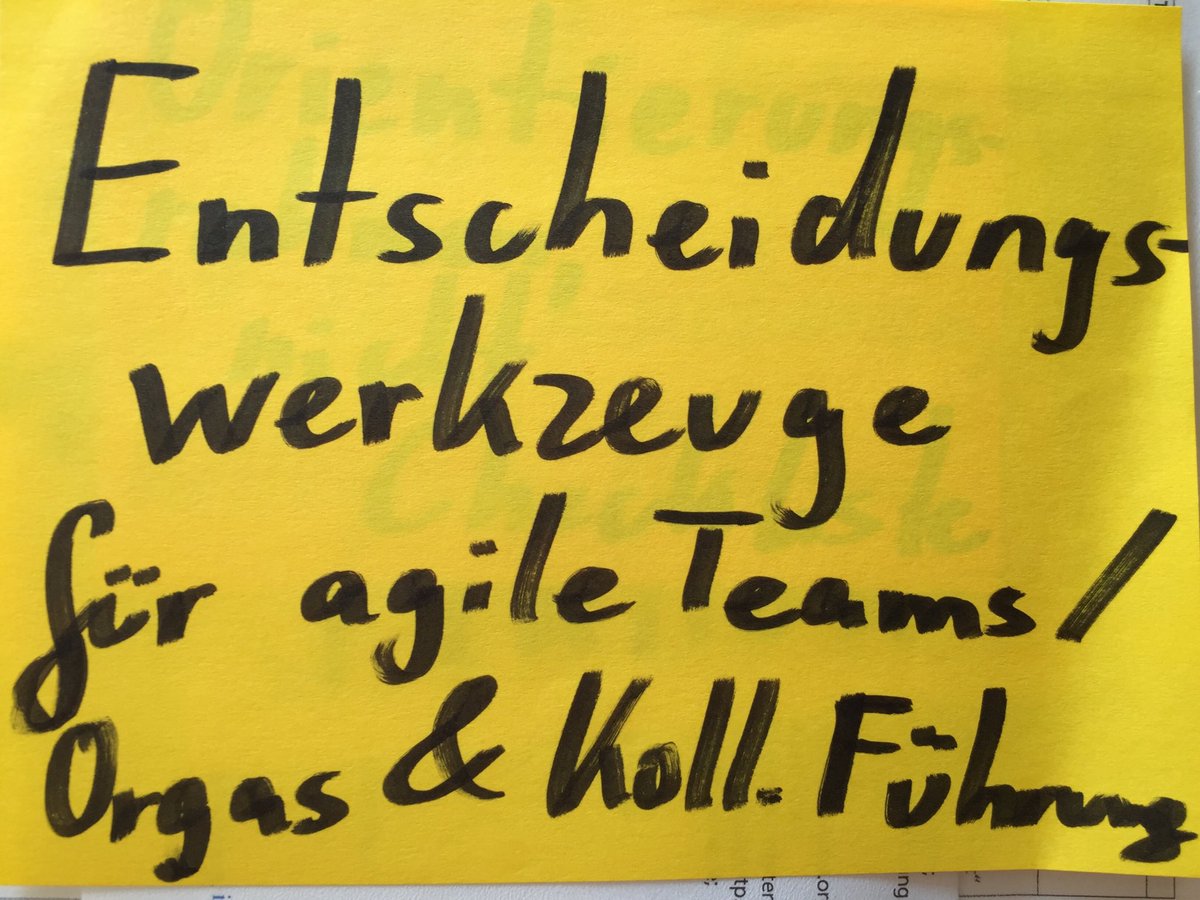 Entscheidungs-
werkzeuge
für agile Teams /
Orgas & Koll. Führung